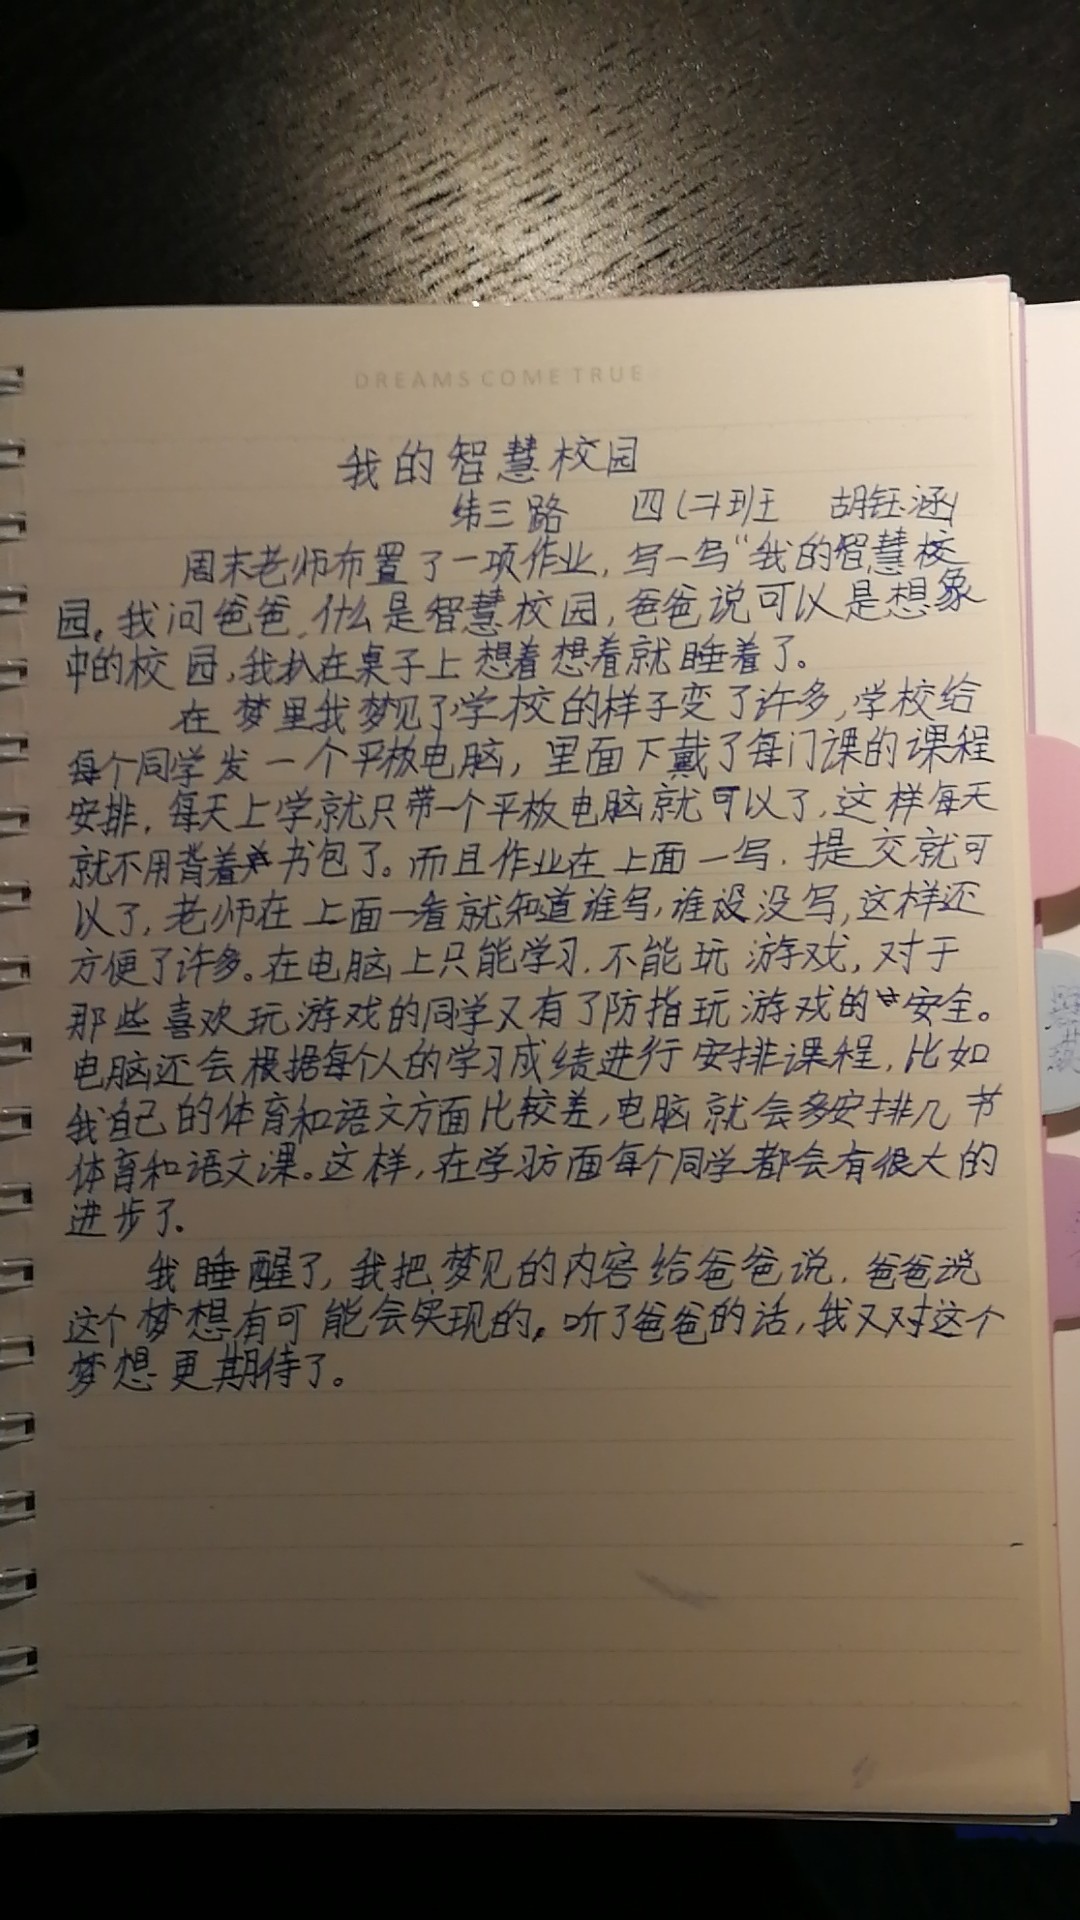 DREAMS COME TRUE
我的智慧校园
纬三路 四(二)班 胡钰涵
周末老师布置了一项作业,写一写“我的智慧校
园。我问爸爸,什么是智慧校园,爸爸说可以是想象
中的校园,我扒在桌子上想着想着就睡着了。
在梦里我梦见了学校的样子变了许多,学校给
每个同学发一个平板电脑,里面下戴了每门课的课程
安排,每天上学就只带一个平板电脑就可以了,这样每天
就不用背着书包了。而且作业在上面一写,提交就可
以了,老师在上面一看就知道谁写,谁没没写,这样还
方便了许多。在电脑上只能学习,不能玩游戏,对于
那些喜欢玩游戏的同学又有了防指玩游戏的安全。
电脑还会根据每个人的学习成绩进行安排课程,比如
我自己的体育和语文方面比较差,电脑就会多安排几节
体育和语文课。这样,在学习方面每个同学都会有很大的
进步了.
我睡醒了,我把梦见的内容给爸爸说,爸爸说
这个梦想有可能会实现的。听了爸爸的话,我又对这个
梦想更期待了。